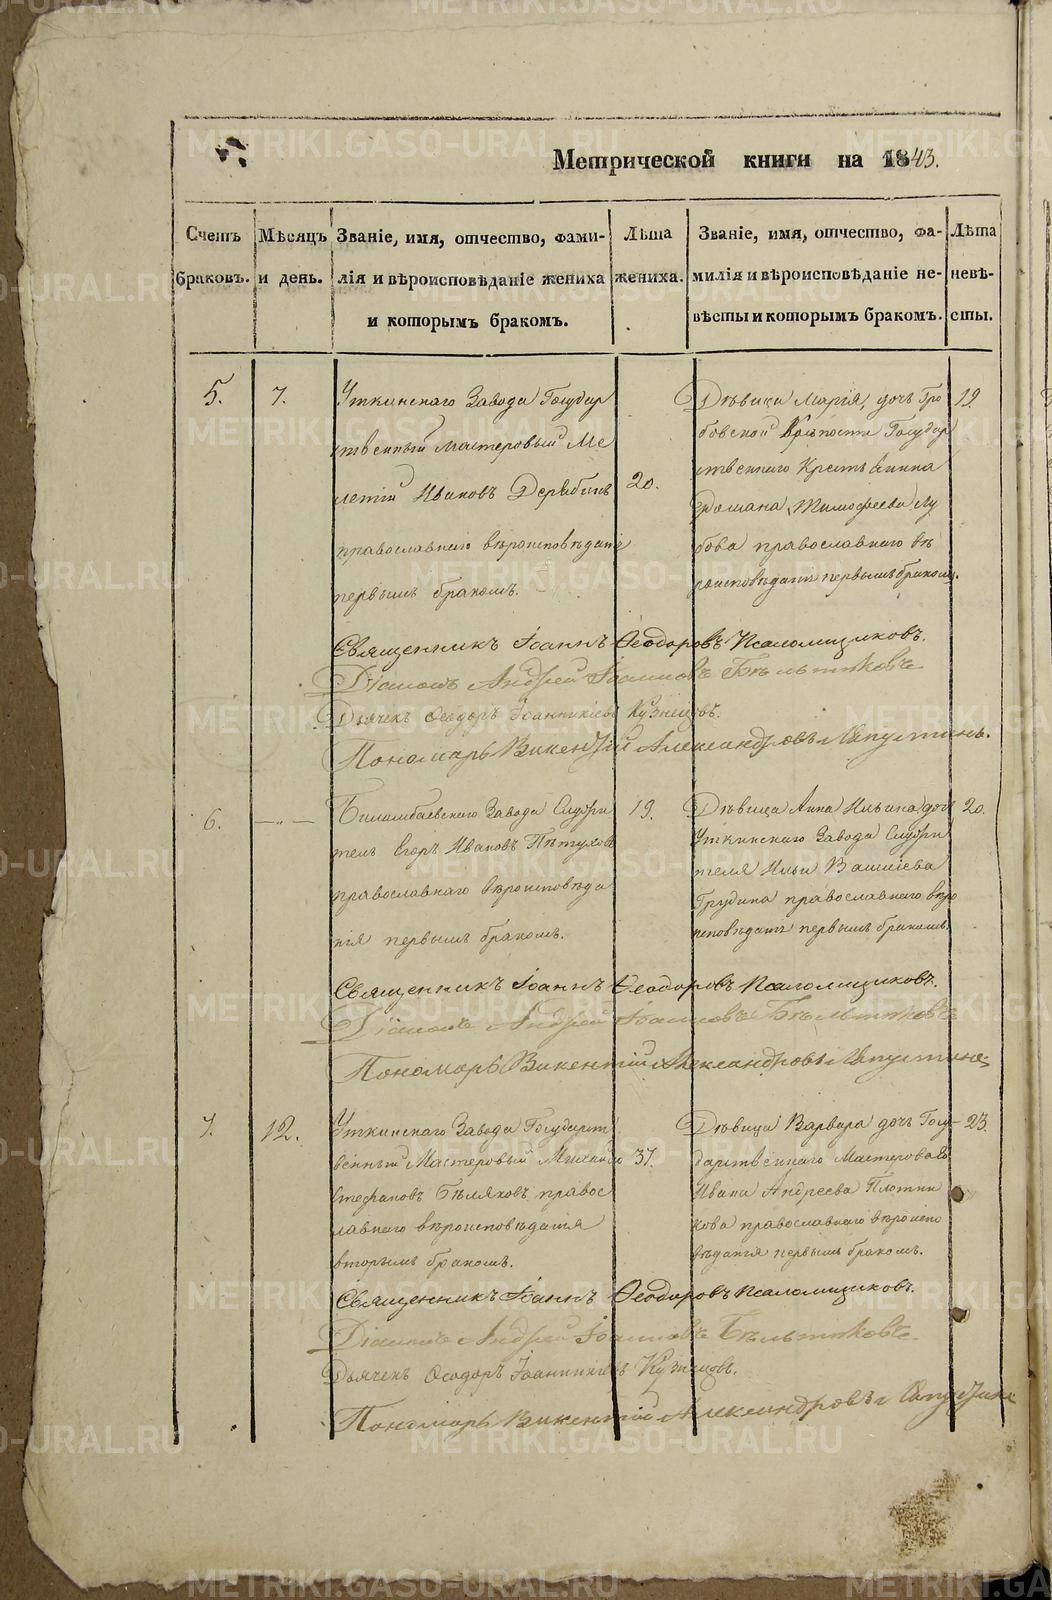 Метрической книги на 1843.
Счетъ браковъ.
Мѣсяцъ и день.
Званіе, имя, отчество, фами-
лія и вѣроисповѣданіе жениха
и которымъ бракомъ.
Лѣта
жениха.
Званіе, имя, отчество, фа-
милія и вѣроисповѣданіе не-
вѣсты и которымъ бракомъ.
Лѣта
невѣ-
сты.
5.
7.
Уткинскаго Завода Государ
ственный мастеровый Ме
летій Ивановъ Дерябинъ
православнаго вѣроисповѣданія
первымъ бракомъ.
20.
Дѣвица Марія, дочь Гро
бовской Крѣпости Государ
ственнаго Крестьянина
Романа Тимофеева Лу
бова православнаго вѣ
роисповѣданія первымъ бракомъ.
19.
Священникъ Іоаннъ Ѳеодоровъ Псаломщиковъ.
Діаконъ Андрей Іоанновъ Бѣльтюковъ
Дьячекъ Ѳеодоръ Іоанникіевъ Кузнецовъ.
Пономарь Викентій Александровъ Капустинъ.
6.
— „ —
Билимбаевскаго Завода Служи
тель Егоръ Ивановъ Пѣтуховъ
православнаго вѣроисповѣда
нія первымъ бракомъ.
19.
Дѣвица Анна Ильина дочь
Уткинскаго Завода Служи
теля Ильи Василіева
Грудина православнаго вѣро
исповѣданія первымъ бракомъ.
20.
Священникъ Іоаннъ Ѳеодоровъ Псаломщиковъ.
Діаконъ Андрей Іоанновъ Бѣльтюковъ
Пономарь Викентій Александровъ Капустинъ.
7.
12.
Уткинскаго Завода Государст
венный Мастеровый Михайло
Стефановъ Бѣляковъ правос
лавнаго вѣроисповѣданія
вторымъ бракомъ.
37.
Дѣвица Варвара дочь Госу-
дарственнаго Мастероваго
Ивана Андреева Плотни
кова православнаго вѣроиспо
вѣданія первымъ бракомъ.
23.
Священникъ Іоаннъ Ѳеодоровъ Псаломщиковъ.
Діаконъ Андрей Іоанновъ Бѣльтюковъ
Дьячекъ Ѳеодоръ Іоанникіевъ Кузнецовъ.
Пономарь Викентій Александровъ Капустинъ
METRIKI.GASO-URAL.RU